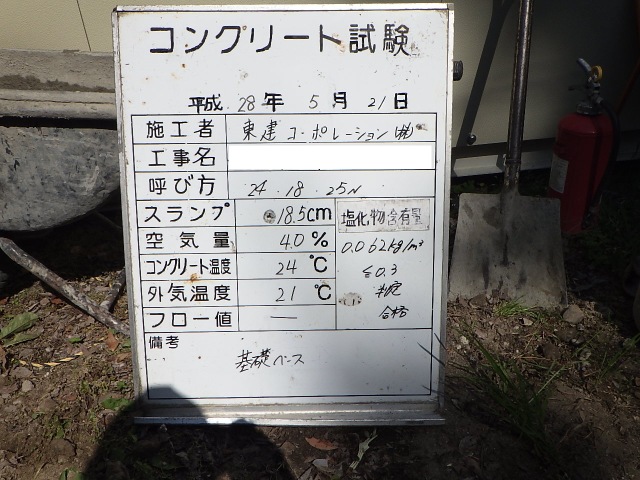 コンクリート試験
平成 28 年 5 月 21 日
施工者 東建コーポレーション(株)
工事名
呼び方 24 . 18 . 25N
スランプ 18.5cm 塩化物含有量
空気量 4.0 % 0.062kg/m³
コンクリート温度 24 ℃ ≦0.3
外気温度 21 ℃ 判定
フロー値 — 合格
備考
基礎ベース